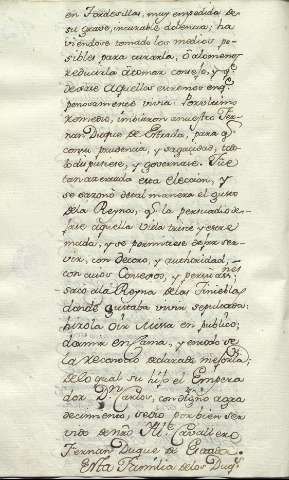 en Tordesillas, muy empedida de
su grave, incurable dolencia; ha
viendose tomado los medios po-
sibles para curarla, ò alomenos
reducirla atomar consejo, y q.e
dejase aquellos extremos enq.
penosamente vivia. Por ultimo
remedio, imbiaron anuestro Fer-
nan Duque de Estrada, para q.
con su prudencia, y sagacidad, todo
lo dispusiese, y governase. Fue
tan acertada esta elección, y
se sazonò detal manera el gusto
dela Reyna, q. la persuadio de-
jase aquella vida triste y estre-
mada, y se permitiese dejar ser-
vir, con decoro, y authoridad;
con cuios Consejos, y persuasi.nes
saco ala Reyna delas Tinieblas
donde gustaba vivir sepultada:
hizola Oir Missa en publico;
dormir en Cama, y entodo se
la reconocio declarada mejoria;
delo qual su hijo el Empera
dor D.n Carlos, con digno agra
decimiento, vedio por bien ser
vido de nro Ill.e Cavallero
Fernan Duque de Estrada.
Esta Familia delos Duq.s